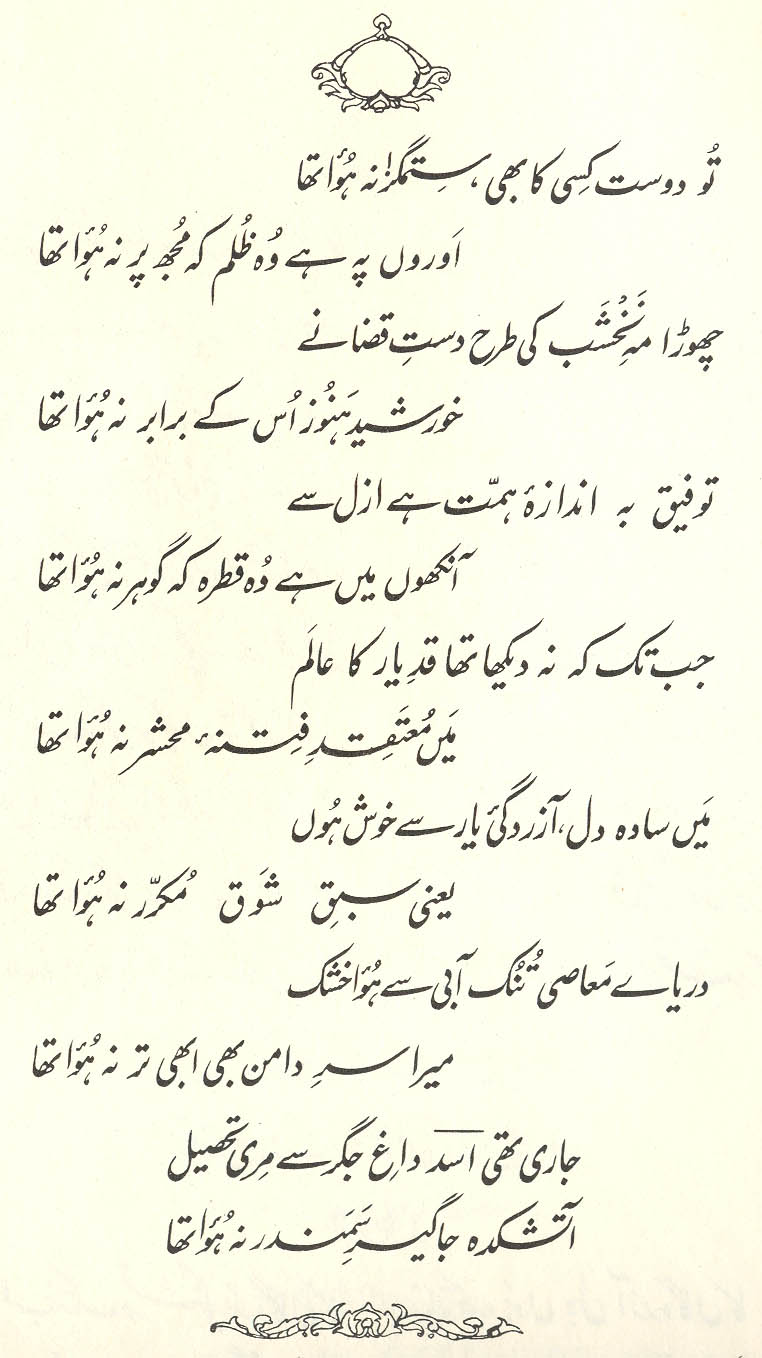 تُو دوست کِسی کا بھی، سِتمگر! نہ ہُوٴا تھا
اَوروں پہ ہے وُہ ظُلم کہ مُجھ پر نہ ہُوٴا تھا
چھوڑا مہِ نَخْشَب کی طرح دستِ قضا نے
خورشید ہَنُوز اُس کے برابر نہ ہُوٴا تھا
توفیق بہ اندازۂ ہمّت ہے ازل سے
آنکھوں میں ہے وُہ قطرہ کہ گوہر نہ ہُوٴا تھا
جب تک کہ نہ دیکھا تھا قدِ یار کا عالَم
مَیں مُعتَقِدِ فِتنۂ محشر نہ ہُوٴا تھا
مَیں سادہ دل، آزردگیٔ یار سے خوش ہُوں
یعنی سبقِ شَوق مُکرّر نہ ہُوٴا تھا
دریاے مَعاصی تُنُک آبی سے ہُوٴا خشک
میرا سرِ دامن بھی ابھی تر نہ ہُوٴا تھا
جاری تھی اسدؔ داغِ جگر سے مِری تحصیل
آتشکدہ جاگیرِ سَمَندر نہ ہُوٴا تھا